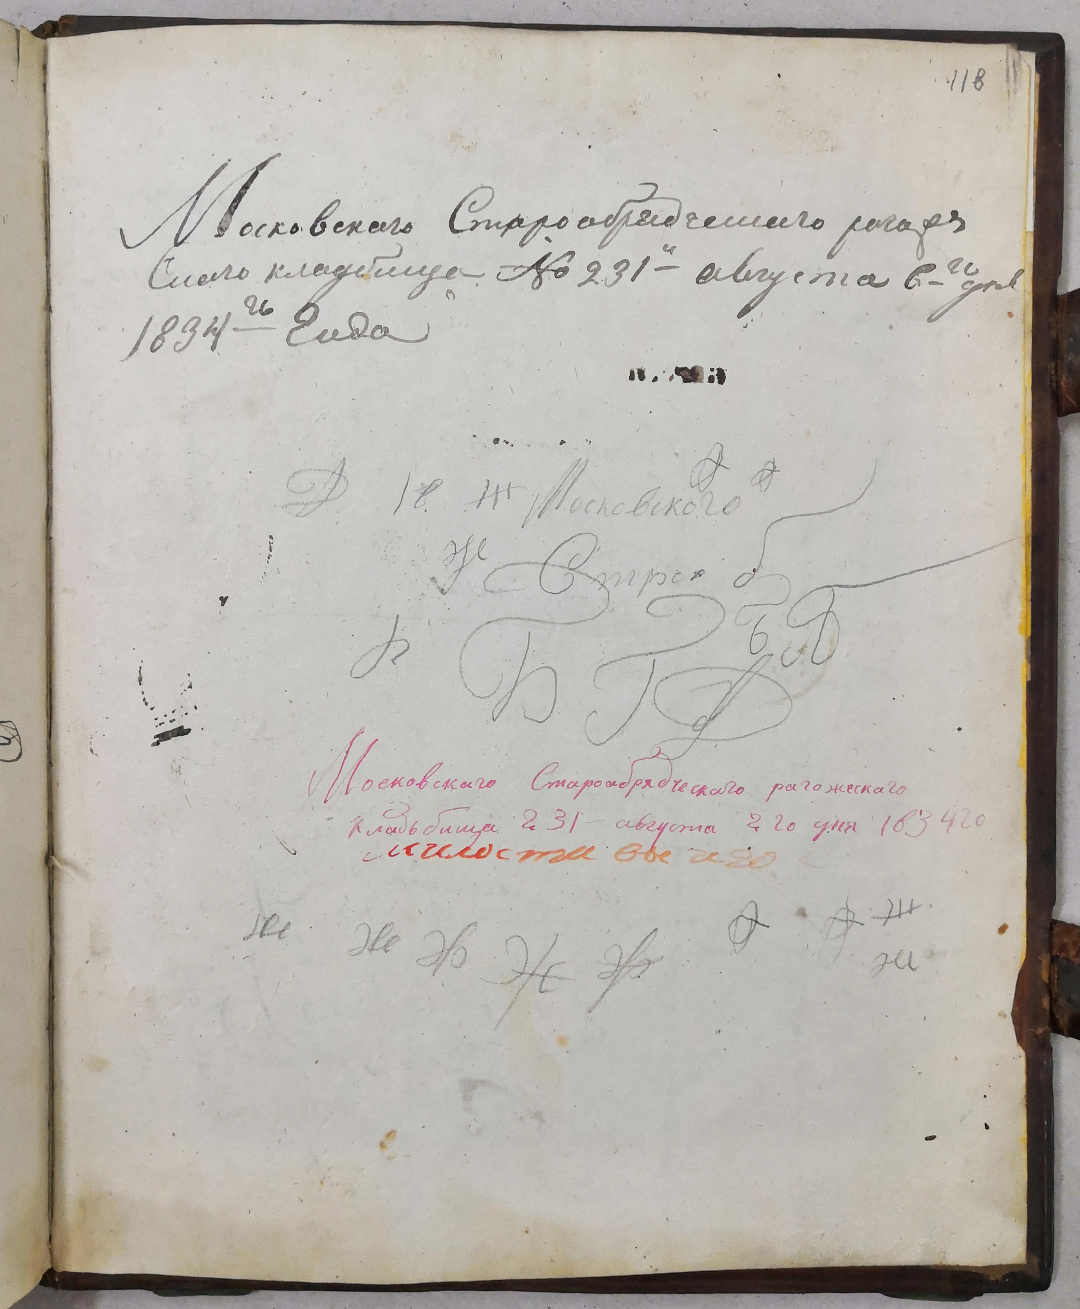 118
Московскаго Старообрядческаго рогож
скаго кладбища № 231й августа 6го дня
1834го Года
Д. Ж Московского
Ж Старо б
Б Г Б
Московскаго Старообрядческаго рагожскаго
кладьбища 231 августа 2го дня 1834го
милости вы
Же Же Ж Ж Ж Ж